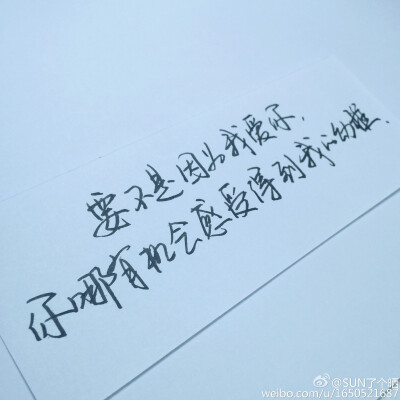 要不是因为我爱你，
你哪有机会感受得到我的幼稚.
@SUN了个晴
weibo.com/u/1650521687